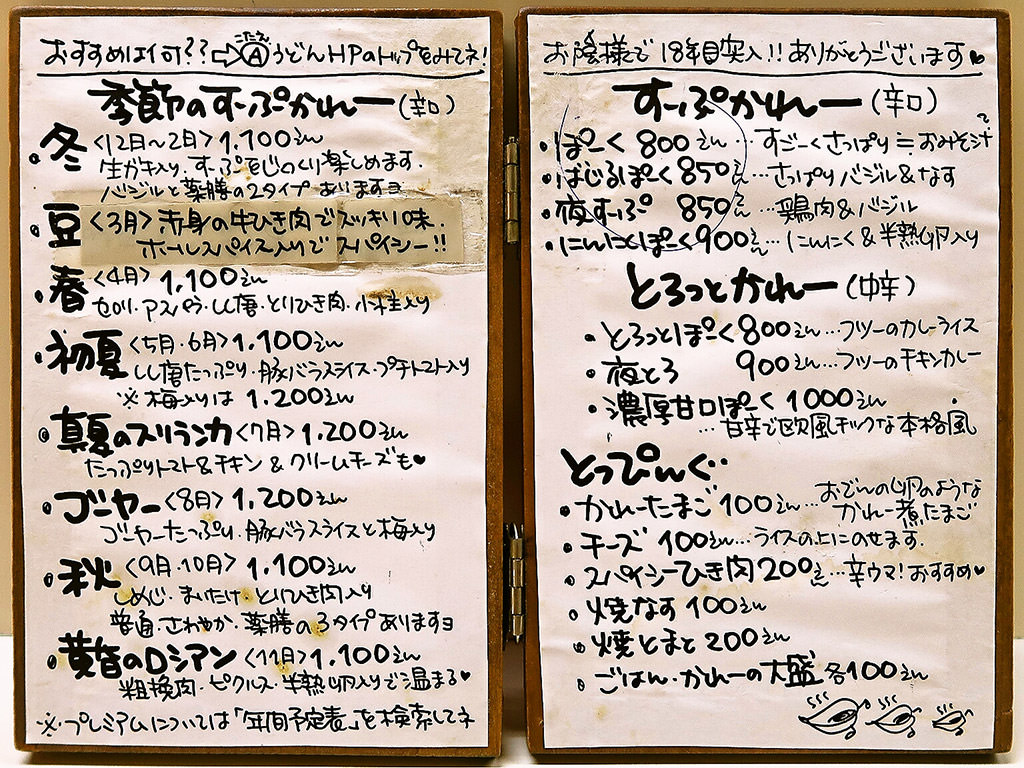 おすすめは何??⇨Ⓐうどん HPのトップをみてネ!
こたえ
季節のすーぷかれー(辛口)
・冬<12月〜2月>1,100えん
生ガキ入り。すーぷをじっくり楽しめます.
バジルと薬膳の2タイプありますヨ
・豆<3月>赤身の牛ひき肉でスッキリ味.
ホールスパイス入りでスパイシー!!
・春<4月>1,100えん
セロリ・アスパラ・しし唐・とりひき肉・小柱入り
・初夏<5月・6月>1,100えん
しし唐たっぷり・豚バラスライス・プチトマト入り
※梅入りは 1,200えん
・真夏のスリランカ<7月>1,200えん
たっぷりトマト&チキン&クリームチーズも♥
・ゴーヤー<8月>1,200えん
ゴーヤーたっぷり・豚バラスライスと梅入り
・秋<9月・10月>1,100えん
しめじ・まいたけ・とりひき肉入り
普通・さわやか・薬膳の3タイプありますヨ
・黄昏のロシアン<11月>1,100えん
粗挽肉・ピクルス・半熟卵入りで温まる♥
※プレミアムについては「年間予定表」を検索してネ
お陰様で18年目突入!!ありがとうございます♥
すーぷかれー(辛口)
・ぽーく 800えん…すごーくさっぱり≒おみそ汁?
・ばじるぽーく 850えん…さっぱりバジル&なす
・夜すーぷ 850えん…鶏肉&バジル
・にんにくぽーく900えん…にんにく&半熟卵入り
とろっとかれー(中辛)
・とろっとぽーく800えん…フツーのカレーライス
・夜とろ 900えん…フツーのチキンカレー
・濃厚甘口ぽーく1000えん
…甘辛で欧風チックな本格風
とっぴんぐ
・かれーたまご100えん…おでんの卵のような
かれー煮たまご
・チーズ 100えん…ライスの上にのせます.
・スパイシーひき肉200えん…辛ウマ!おすすめ♥
・焼なす100えん
・焼とまと200えん
・ごはん・かれーの大盛各100えん